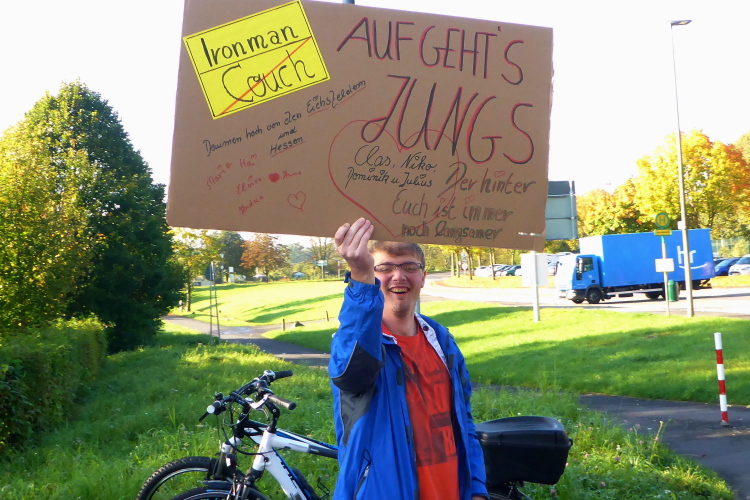 Ironman
Couch
AUF GEHT'S
JUNGS
Daumen hoch von den Eichszeldern
und
Hessen
Clas, Niko
Dominik u Julius
Der hinter
Euch ist immer
noch langsamer
hr